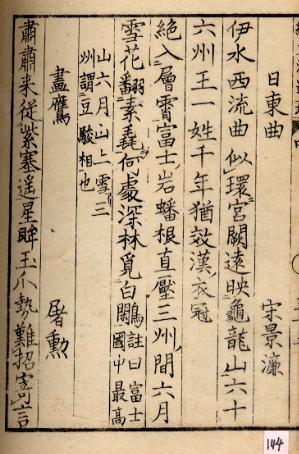 日東曲
宋景濂
伊水西流曲似環宮闕遠映龜龍山六十
六州王一姓千年猶效漢衣冠
絶入層霄富士岩蟠根直壓三州間六月
雪花翻素毳何處深林覓白鷴註曰富士
國中最高
山六月山上雪三
州謂豆駿相也
畫鷹
屠勲
肅肅来従紫塞遥星眸玉爪勢難招寄言
144